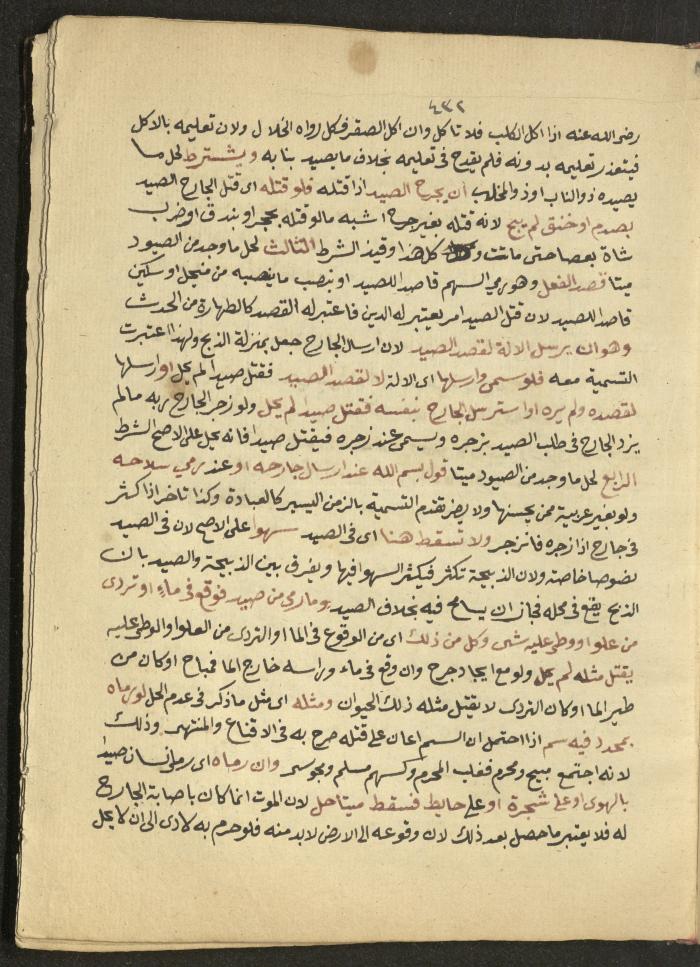 ٤٣٢
رضى الله عنه اذا اكل الكلب فلا تاكل وان اكل الصقر فكل رواه الخلال ولان تعليمه بالاكل
فيتعذر تعليمه بدونه فلم يقدح فى تعليمه بخلاف ما يصيد بنابه ويشترط لحل ما
يصيده ذو الناب او ذو المخلاب ان يجرح الصيد اذا قتله فلو قتله اى قتل الجارح الصيد
بصدم او خنق لم يبح لانه قتله بغير جرح اشبه ما لو قتله بحجر او بندق او ضرب
شاة بعصا حتى ماتت كل هذا وقيذ الشرط الثالث لحل ما وجد من الصيود
ميتا قصد الفعل وهو رمي السهم قاصدا للصيد او ينصب ما ينصبه من منجل او سكين
قاصدا للصيد لان قتل الصيد امر يعتبر له الدين فاعتبر له القصد كالطهارة من الحدث
وهو ان يرسل الالة لقصد الصيد لان ارسال الجارح جعل بمنزلة الذبح ولهذا اعتبرت
التسمية معه فلو سمى وارسلها اى الالة لا لقصد الصيد فقتل صيدا لم يحل او ارسلها
لقصده ولم يره او استرسل الجارح بنفسه فقتل صيدا لم يحل ولو زجر الجارح ربه ما لم
يزد الجارح فى طلب الصيد بزجره ويسمى عند زجره فيقتل صيدا فانه يحل على الاصح الشرط
الرابع لحل ما وجد من الصيود ميتا قول بسم الله عند ارسال جارحه او عند رمي سلاحه
ولو بغير عربية ممن يحسنها ولا يضر تقدم التسمية بالزمن اليسير كالعبادة وكذا تاخر اذا كثر
فى جارح اذا زجره فانزجر ولا تسقط هنا اى فى الصيد سهوا على الاصح لان فى الصيد
نصوصا خاصة ولان الذبيحة تكثر فيكثر السهو فيها ويفرق بين الذبيحة والصيد بان
الذبح يقع فى محله فجاز ان يسامح فيه بخلاف الصيد وما رمي من صيد فوقع فى ماء او تردى
من علو او وطى عليه شى وكل من ذلك اى من الوقوع فى الما او التردى من العلو او الوطى عليه
يقتل مثله لم يحل ولو مع ايجا د جرح وان وقع فى ماء وراسه خارج الما فمباح او كان من
طير الما او كان التردى لا يقتل مثله ذلك الحيوان ومثله اى مثل ما ذكر فى عدم الحل لو رماه
بمحدد فيه سم اذا احتمل ان السم اعان على قتله صرح به فى الاقناع والمنتهى وذلك
لانه اجتمع مبيح ومحرم فغلب المحرم وكسهم مسلم ومجوسى وان رماه اى رمى انسان صيدا
بالهوى او على شجرة او على حايط فسقط ميتا حل لان الموت انما كان باصابة الجارح
له فلا يعتبر ما حصل بعد ذلك لان وقوعه الى الارض لا بد منه فلو حرم به لادى الى ان لا يحل